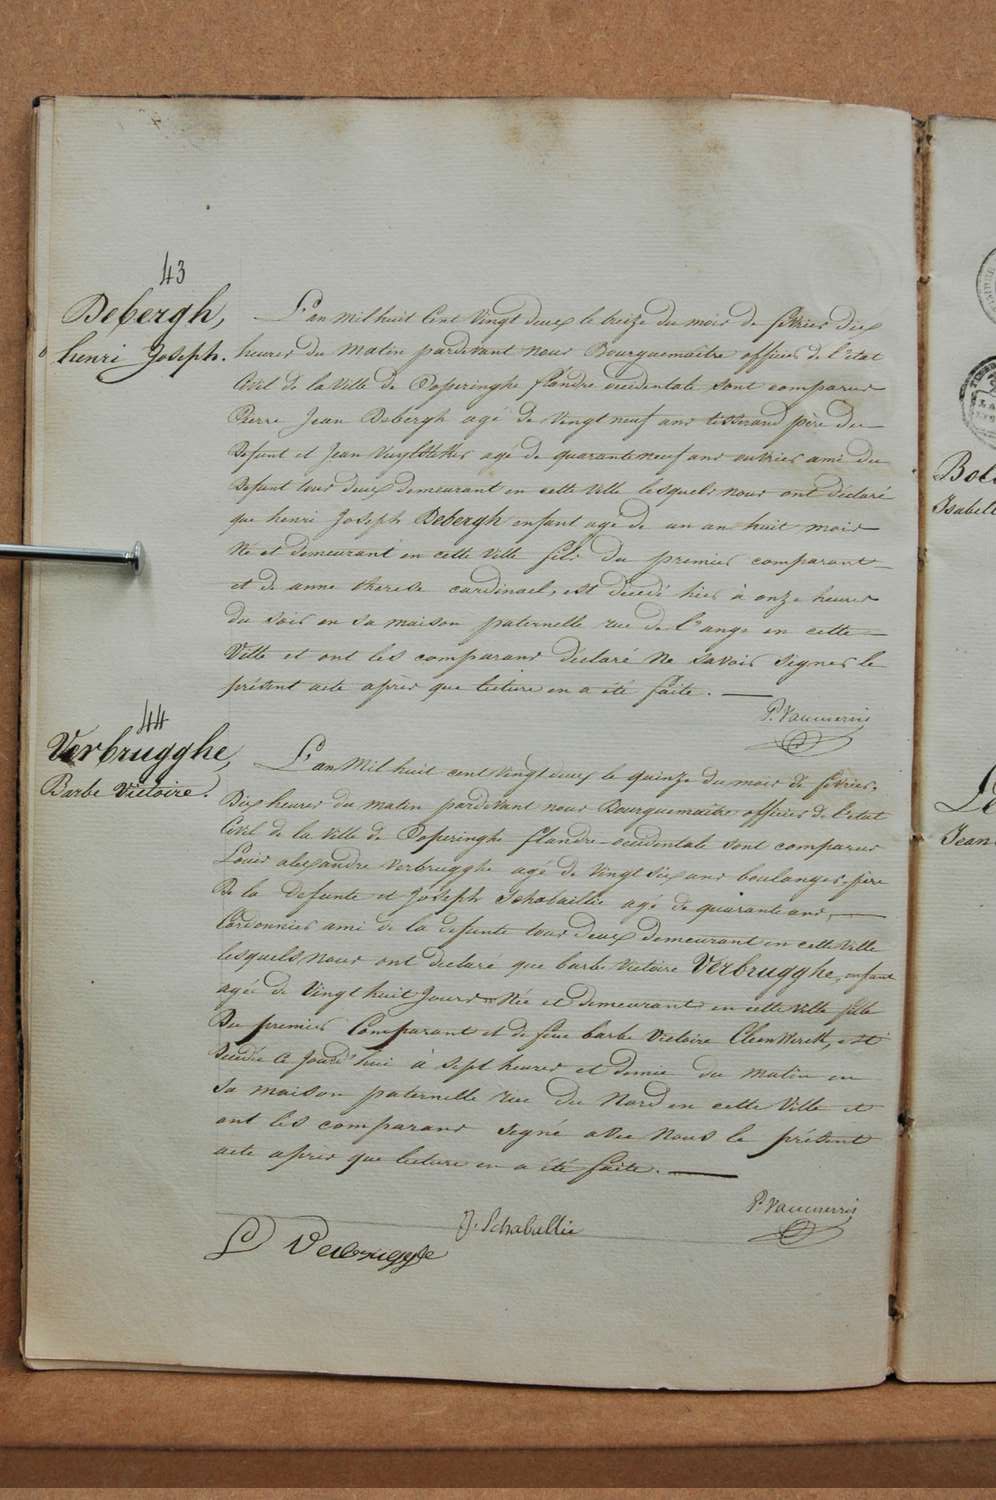 43
Debergh,
henri Joseph.
L'an mil huit Cent Vingt deux le treize du mois de fevrier dix
heures du matin pardevant nous Bourguemaitre officier de l'etat
Civil de la Ville de Poperinghe flandre occidentale sont comparus
Pierre Jean Debergh agé de Vingt neuf ans tisserand père du
Defunt et Jean agé de quarante neuf ans ouvrier ami du
Defunt tous deux demeurant en cette Ville lesquels nous ont déclaré
que henri Joseph Debergh enfant agé de un an huit mois
Né et demeurant en cette Ville fils du premier comparant
et de anne therese cardinael, est decedé hier à onze heures
du soir en sa maison paternelle rue de l'ange en cette
Ville et ont les comparans déclaré ne savoir signer le
présent acte après que lecture en a été faite.
P. Vanmerris
44
Verbrugghe,
Barbe Victoire.
L'an Mil huit cent Vingt deux le quinze du mois de fevrier
Dix heures du matin pardevant nous Bourguemaitre officier de l'etat
Civil de la Ville de Poperinghe flandre-occidentale sont comparus
Louis alexandre Verbrugghe agé de Vingt six ans boulanger, père
De la Defunte et Joseph Schabaillie agé de quarante ans,
Cordonnier ami de la defunte tous deux demeurant en cette Ville
lesquels nous ont declaré que barbe Victoire Verbrugghe, enfant
agée de Vingt huit Jours Née et demeurant en cette Ville fille
Du premier Comparant et de feue barbe Victoire Cleenwerck, est
Decedée ce Jourd'hui à sept heures et demie du matin en
Sa maison paternelle rue du Nord en cette Ville et
ont les comparans signé avec Nous le présent
acte après que lecture en a été faite.
P. Vanmerris
J. Schabaillie
L Verbrugghe
Bol
Isabell
Le
Jean